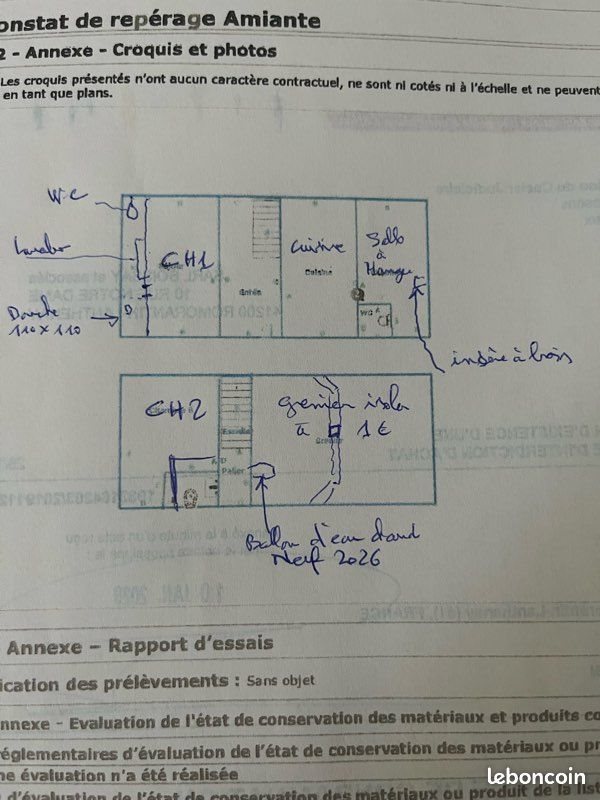 onstat de repérage Amiante
2 - Annexe - Croquis et photos
Les croquis présentés n'ont aucun caractère contractuel, ne sont ni cotés ni à l'échelle et ne peuvent
en tant que plans.
W.C
Lavabo
Douche
110 x 110
D
CH1
Entrée
cuisine
Cuisine
Salle
à
Manger
WC
insère à bois
CH2
Palier
grenier isolé
à 1€
Ballon d'eau chaud
Neuf 2026
Annexe – Rapport d'essais
ication des prélèvements : Sans objet
nnexe - Evaluation de l'état de conservation des matériaux et produits co
réglementaires d'évaluation de l'état de conservation des matériaux ou pr
ne évaluation n'a été réalisée
d'évaluation de l'état de conservation des matériaux ou produit de la list
leboncoin